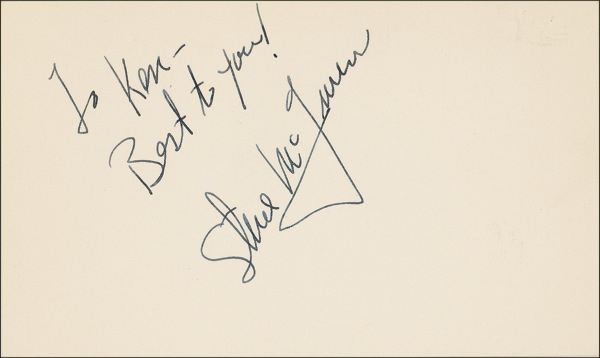 To Ken -
Best to you!
Steve McQueen